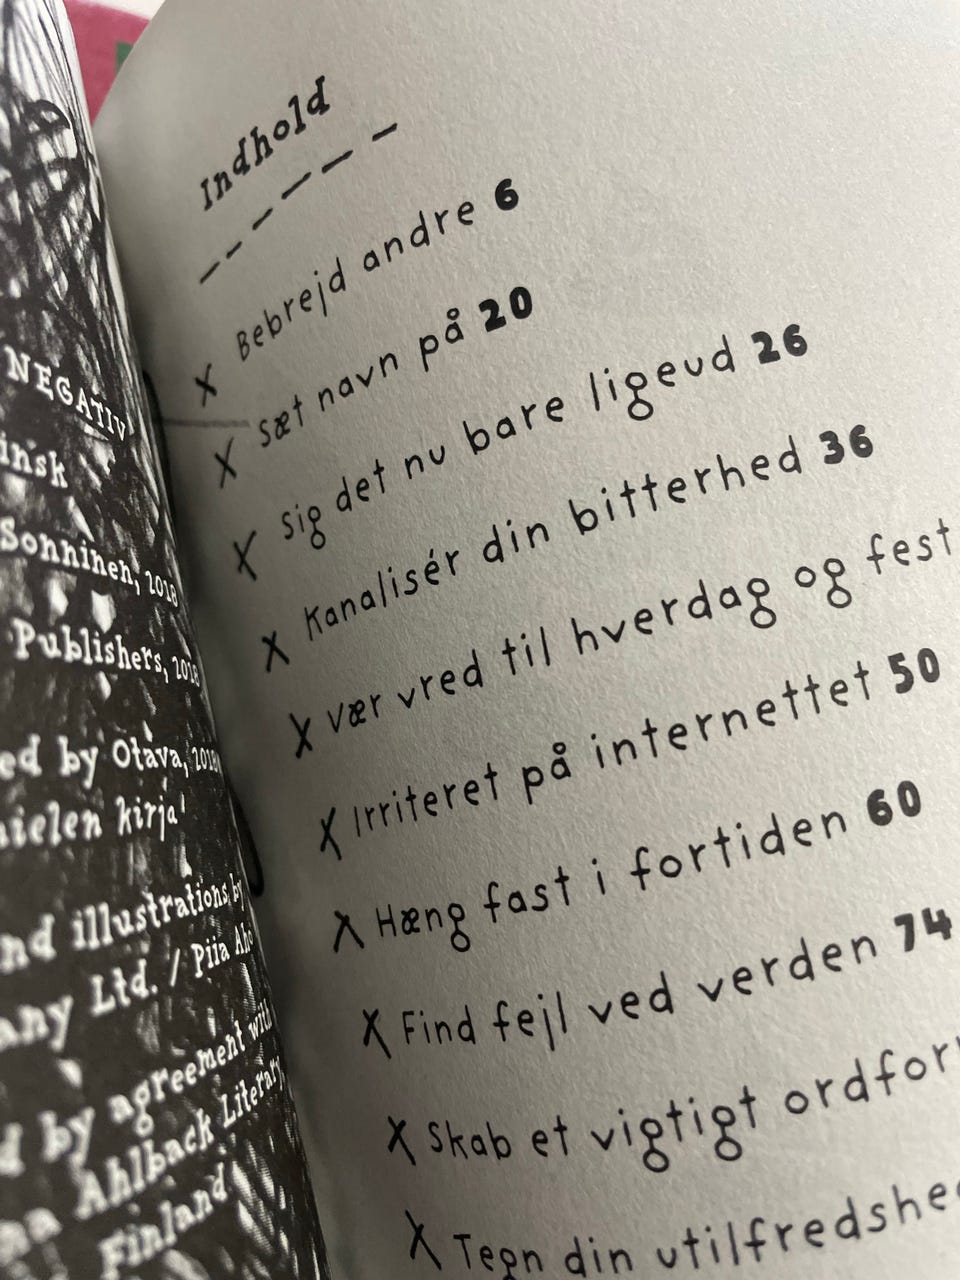 NEGATIV
Sonninen, 2018
Publishers, 2019
by Otava, 2018
kirja'
illustrations by
Ltd. / Piia Aho
by agreement with
Ahlback Literary
Finland
Indhold
X Bebrejd andre 6
X Sæt navn på 20
X Sig det nu bare ligeud 26
X Kanalisér din bitterhed 36
X Vær vred til hverdag og fest
X Irriteret på internettet 50
X Hæng fast i fortiden 60
X Find fejl ved verden 74
X Skab et vigtigt
X Tegn din